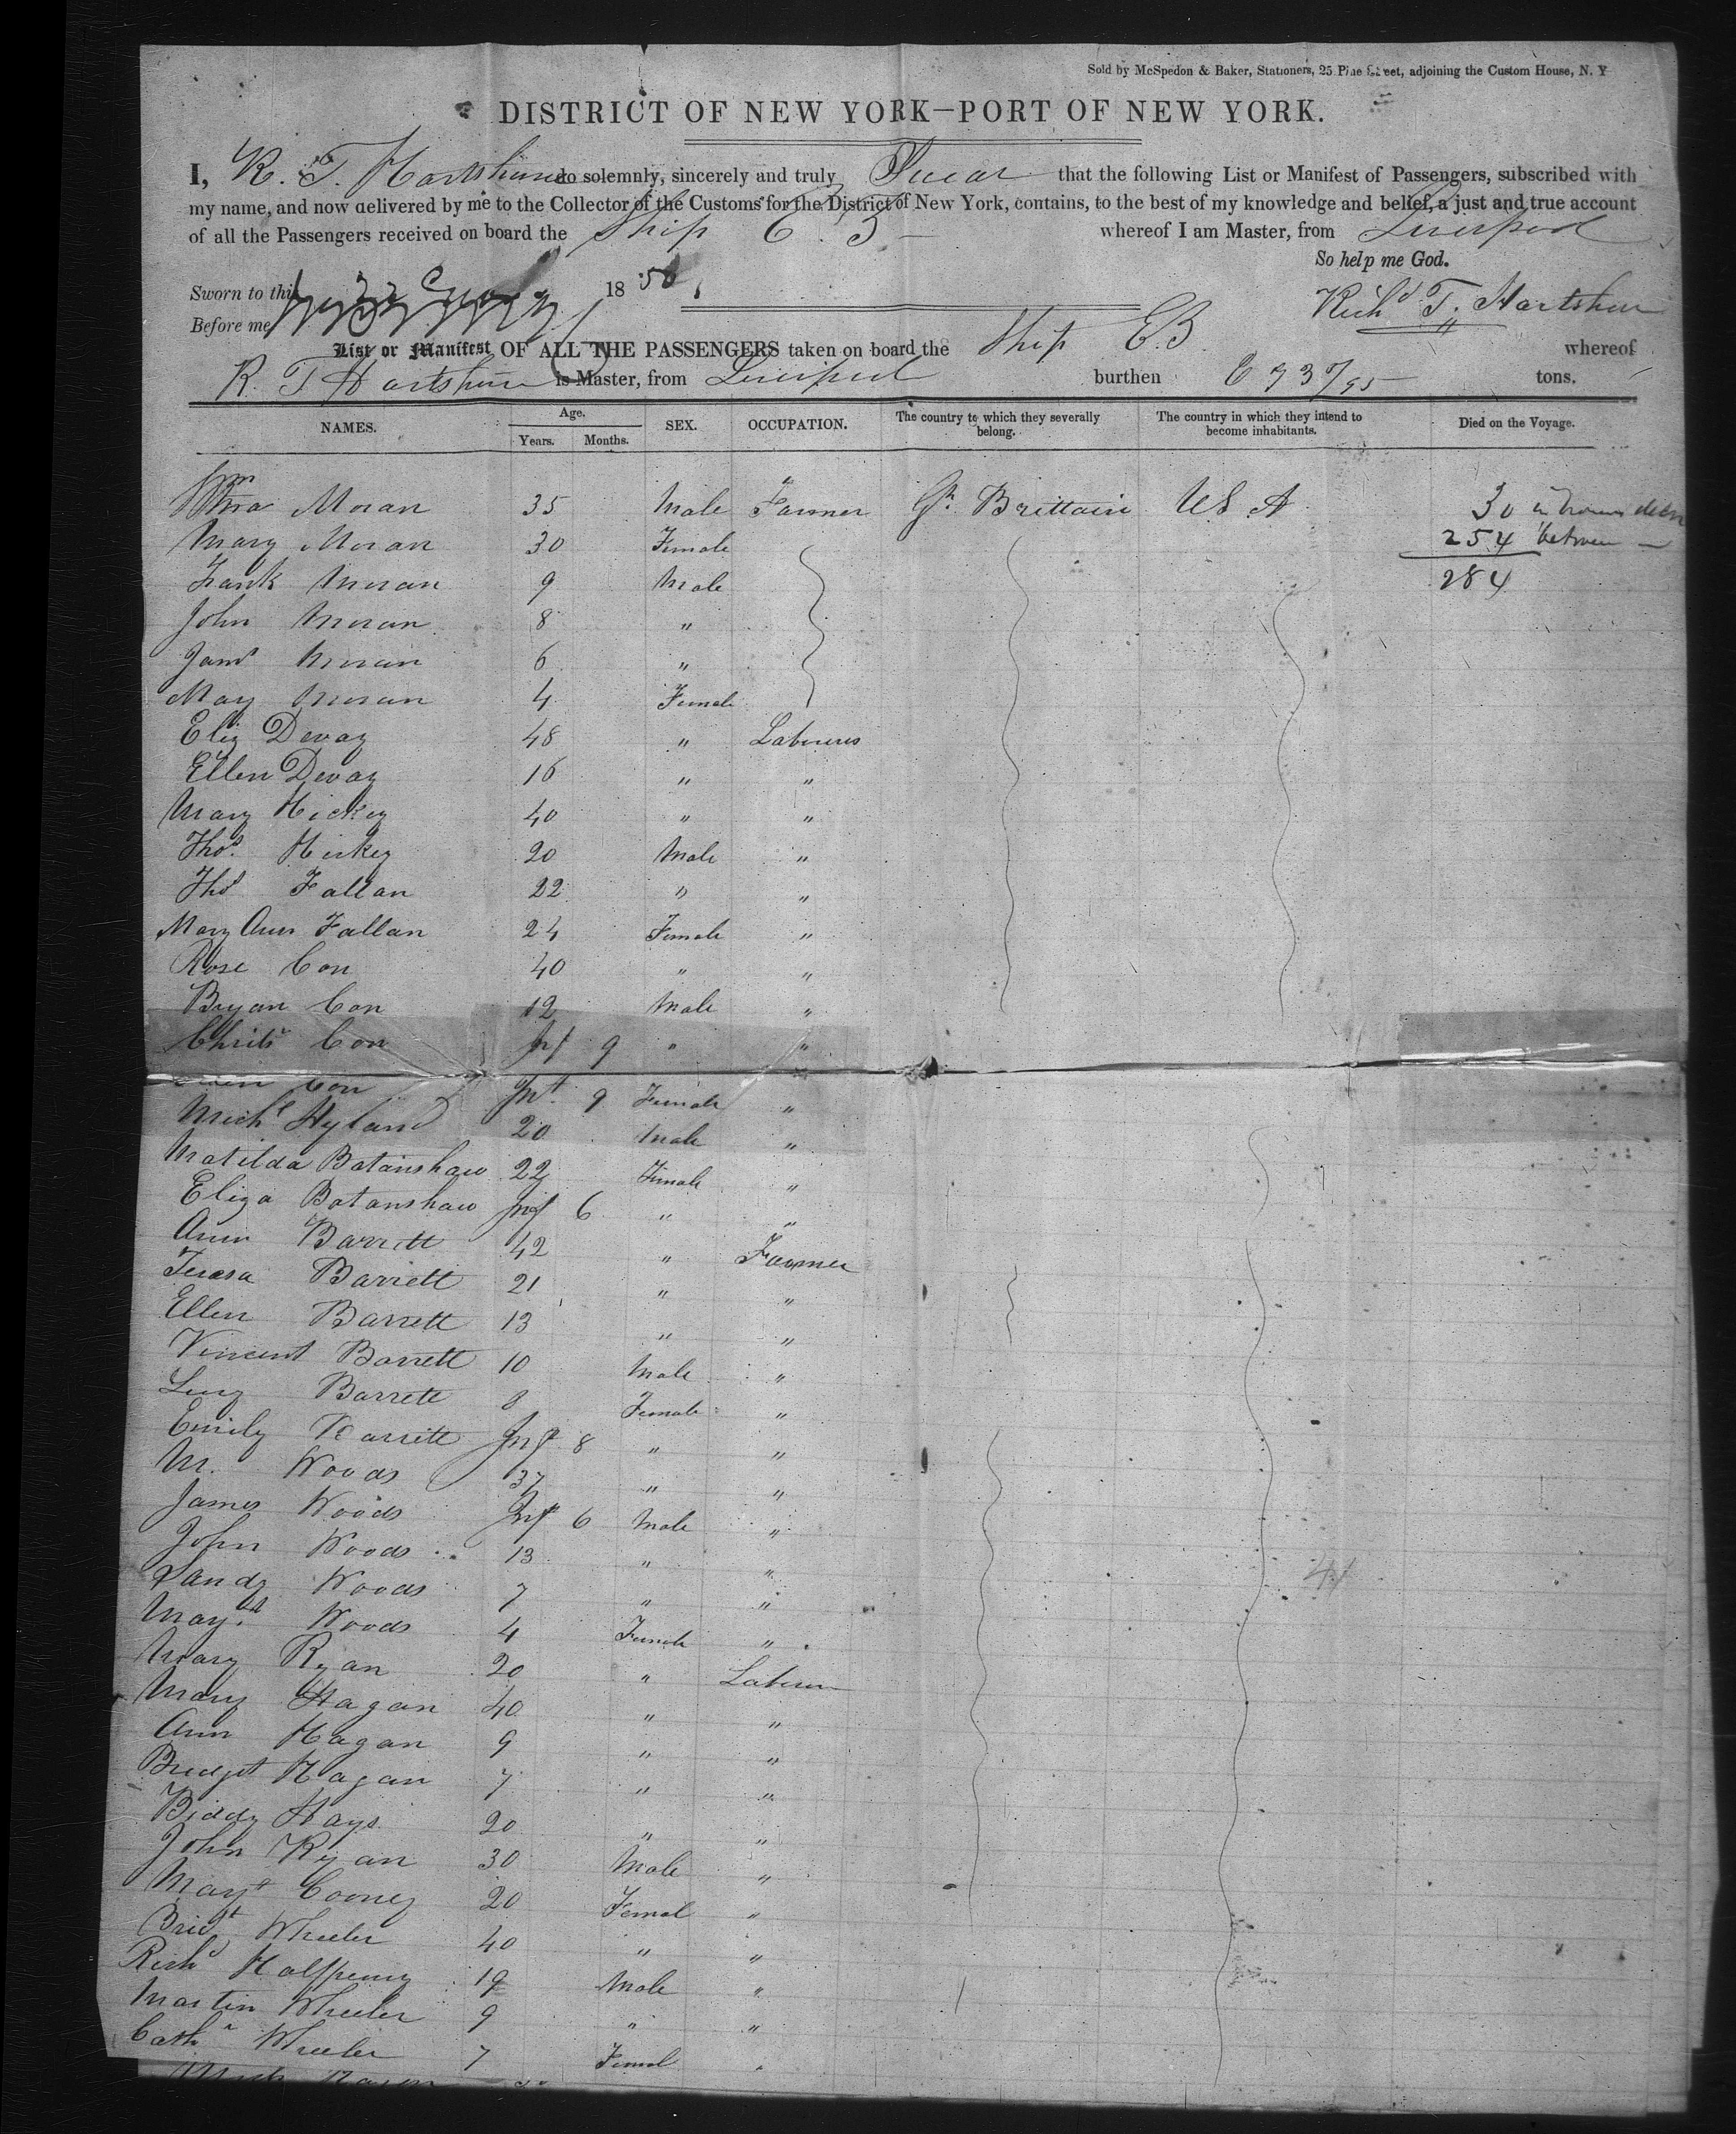 Sold by McSpedon & Baker, Stationers, 25 Pine Street, adjoining the Custom House, N. Y
DISTRICT OF NEW YORK—PORT OF NEW YORK.
I, R. T. Hartshorn do solemnly, sincerely and truly Swear that the following List or Manifest of Passengers, subscribed with
my name, and now delivered by me to the Collector of the Customs for the District of New York, contains, to the best of my knowledge and belief, a just and true account
of all the Passengers received on board the Ship whereof I am Master, from Liverpool
So help me God.
Sworn to this 1850
Before me
Richd T. Hartshorn
List or Manifest OF ALL THE PASSENGERS taken on board the Ship whereof
R. T Hartshorn is Master, from Liverpool burthen tons.
NAMES. Age. Years. Months. SEX. OCCUPATION. The country to which they severally belong. The country in which they intend to become inhabitants. Died on the Voyage.
Moran 35 Male Farmer Gt Brittain US A 30
Mary Moran 30 Female 254 between
Frank Moran 9 Male 284
John Moran 8 "
Jams Moran 6 "
May Moran 4 Female
Eliz Devay 48 " Laborers
Ellen Devay 16 " "
Mary Hickey 40 " "
Thos Hickey 20 Male "
Thos Fallan 22 " "
Mary Ann Fallan 24 Female "
Rose Con 40 " "
Bryan Con 12 Male "
Con Inf 9 " "
Con Inf 9 Female "
Michl Hyland 20 Male "
Matilda Batanshaw 22 Female "
Eliza Batanshaw Inf 6 " "
Ann Barrett 42 " Farmer
Teresa Barrett 21 " "
Ellen Barrett 13 " "
Vincent Barrett 10 Male "
Lucy Barrett 8 Female "
Emily Barrett Inf 8 " "
M. Woods 37 " "
James Woods Inf 6 Male "
John Woods 13 " "
Woods 7 " "
Woods 4 Female "
Mary Ryan 20 " Laborer
Mary Hagan 40 " "
Ann Hagan 9 " "
Bridget Hagan 7 " "
Biddy Hays 20 " "
John Ryan 30 Male "
Mayt Cooney 20 Femal "
Bridt Wheeler 40 " "
Richd Halfpenny 19 Male "
Martin Wheeler 9 " "
Cathn Wheeler 7 Femal "